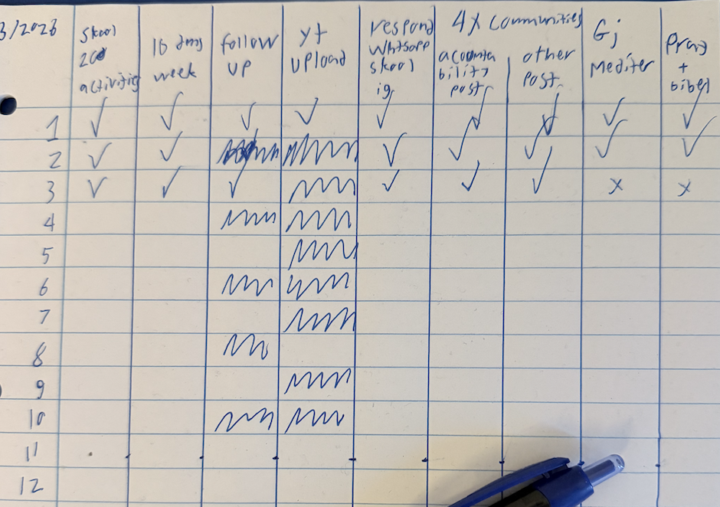 3/2023
skool
20
activities
10 dms
week
follow
up
yt
upload
respond
whatsapp
skool
ig
4x communities
accounta
bility
post
other
post
Gj
Mediter
Pray
+
bibel
1 ✓ ✓ ✓ ✓ ✓ ✓ ✓ ✓ ✓
2 ✓ ✓ ✓ ✓ ✓ ✓ ✓
3 ✓ ✓ ✓ ✓ ✓ ✓ x x
4
5
6
7
8
9
10
11
12